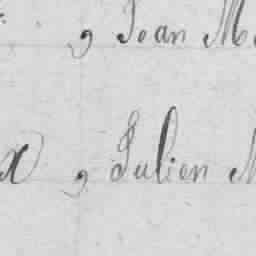 , Jean M
x , Julien M